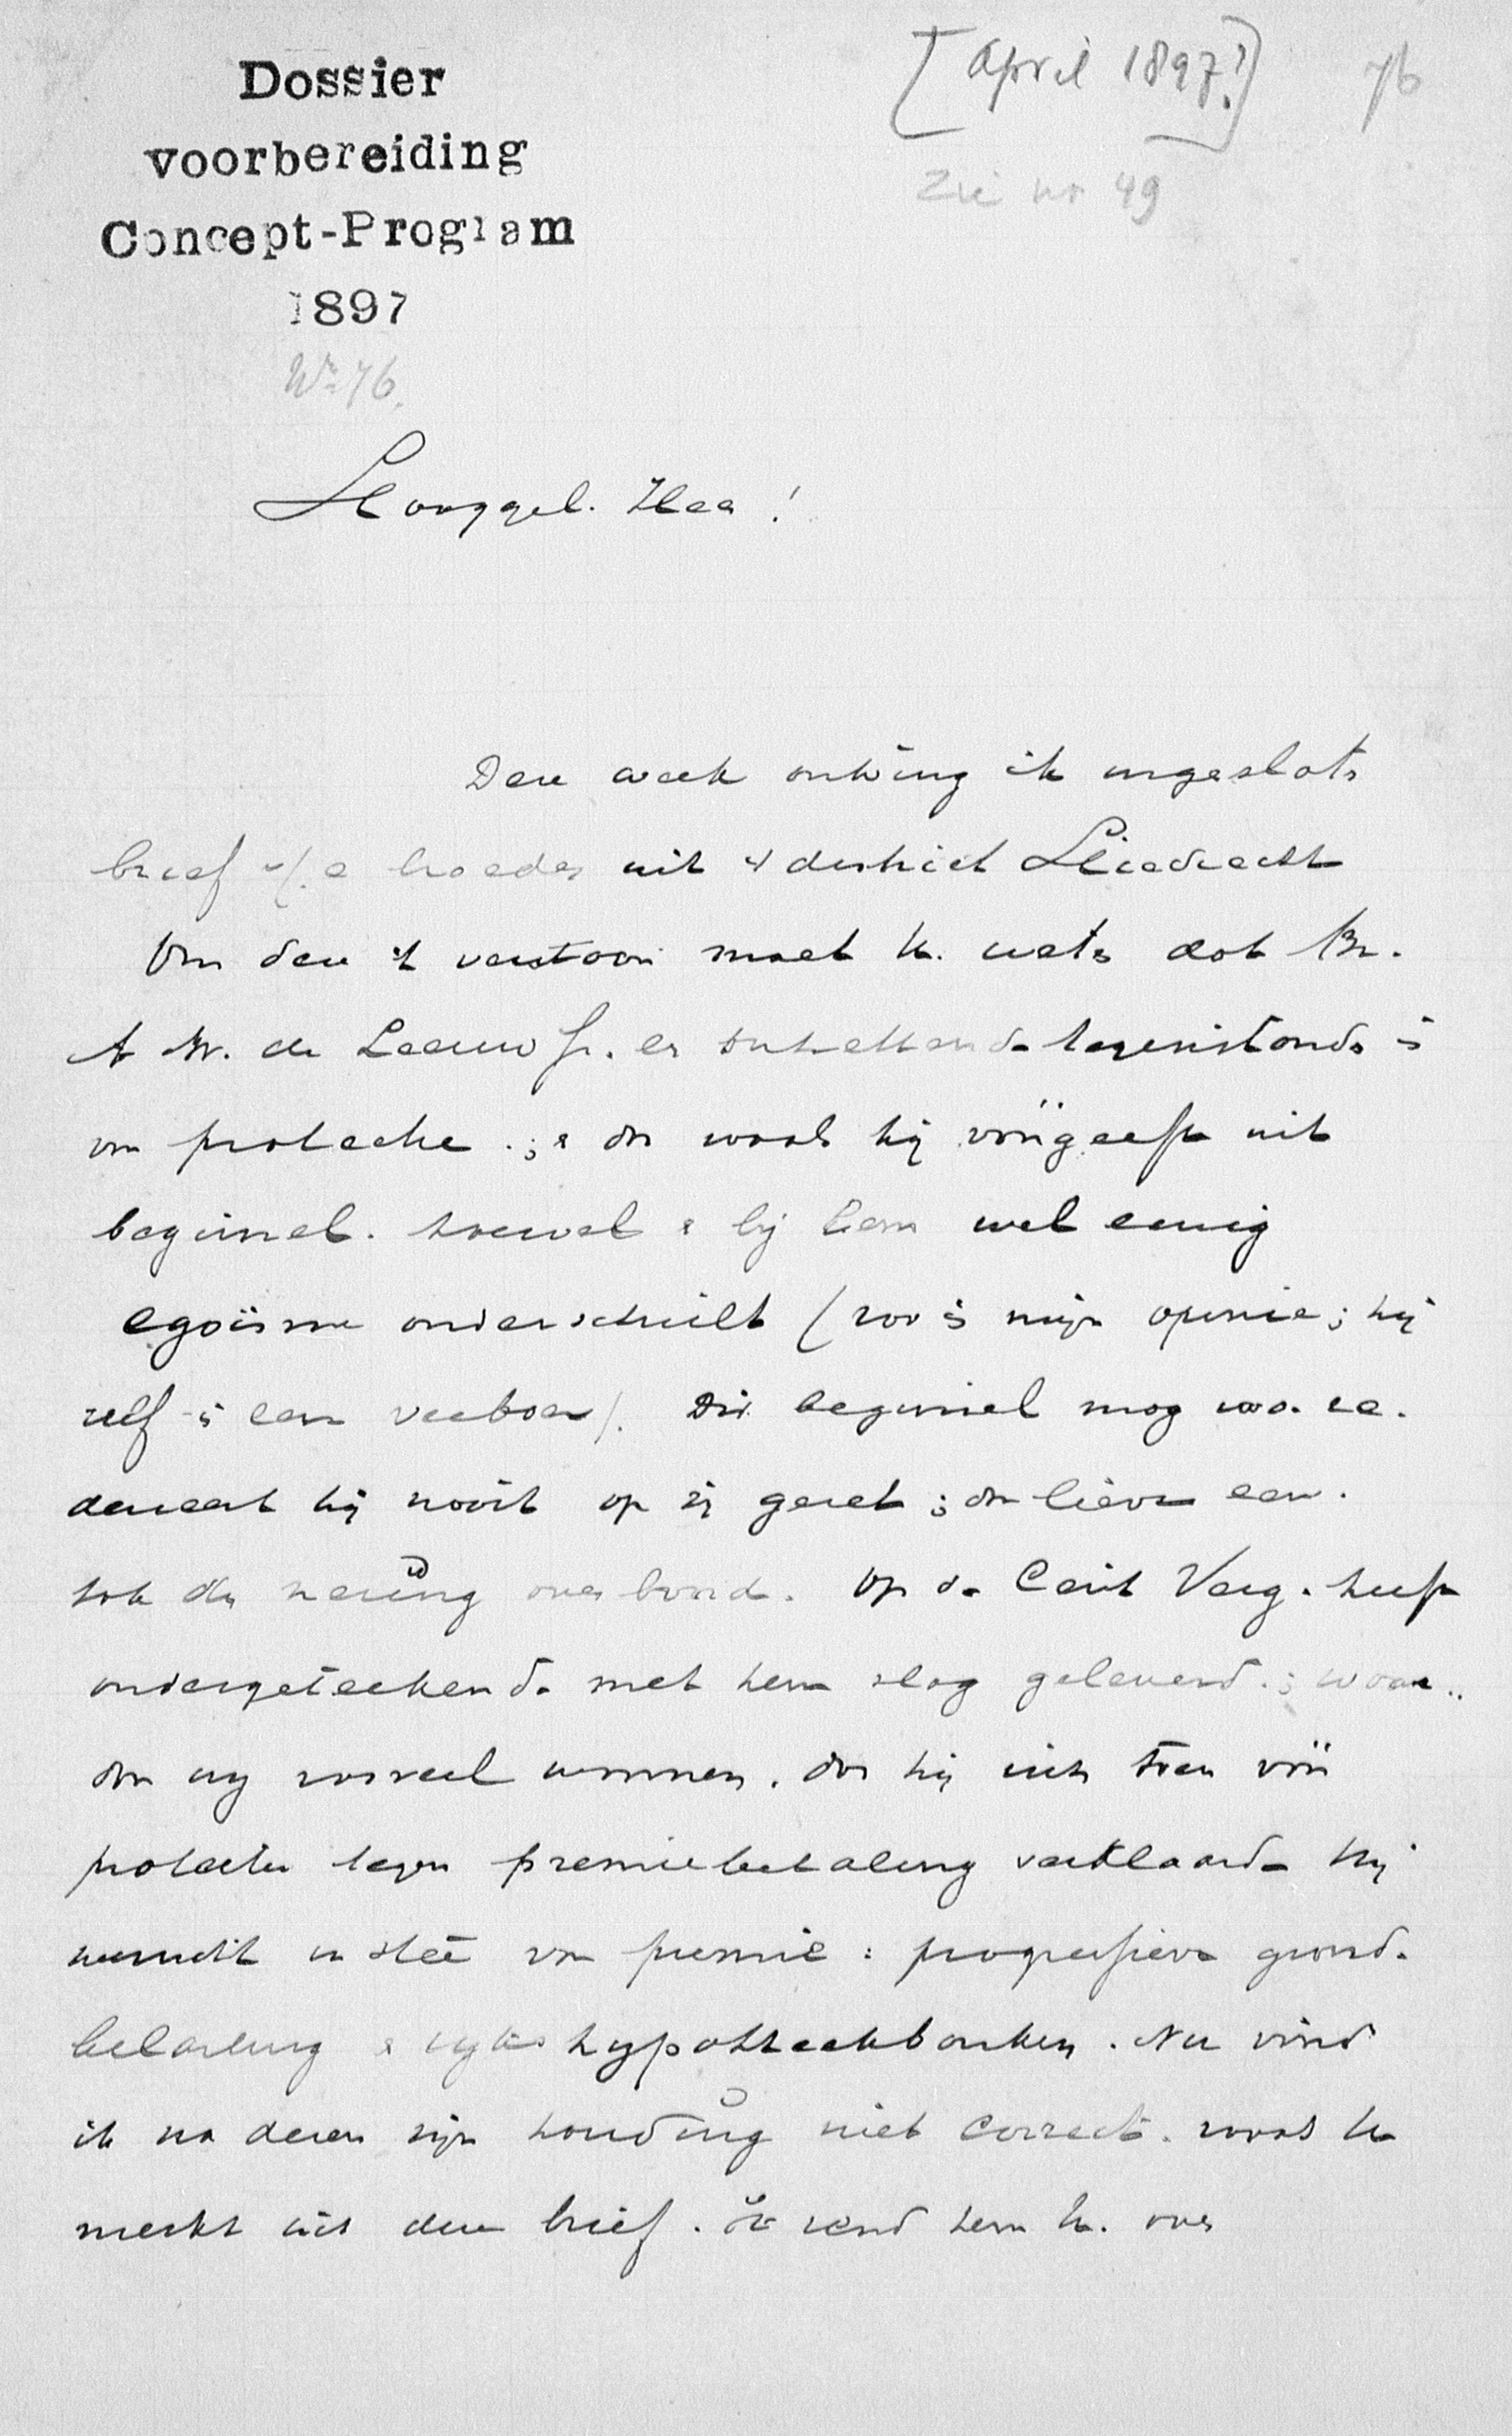 Dossier
voorbereiding
Concept-Program
1897
No 76.
[April 1897?]
76
zie no 49
Hooggel. Heer!
Deze week ontving ik ingesloten
brief v/e broeder uit 't district Sliedrecht
Om deze te verstaan moet U. weten dat Br.
A W. de Leeuw Jr. een tegenstander is
van protectie.; en dan zooals hij voorgeeft uit
beginsel. hoewel er bij hem wel eenig
egoïsme onderschuilt (zoo is mijn opinie; hij
zelf is een veeboer). Dit beginsel mog
hij nooit op zij gezet; dan liever een
de nering over boord. Op de Cent Verg. heeft
ondergeteekende met hem slag geleverd.; waar..
wij zooveel wonnen. dat hij zich toen vóór
protectie tegen premiebetaling verklaarde Hij
wenscht in steê van premie: progressieve grond-
belasting & rijks hypotheekbanken. Nu vind
ik na dezen zijn houding niet correct. zooals U
merkt uit deze brief. Ik zend hem U. over